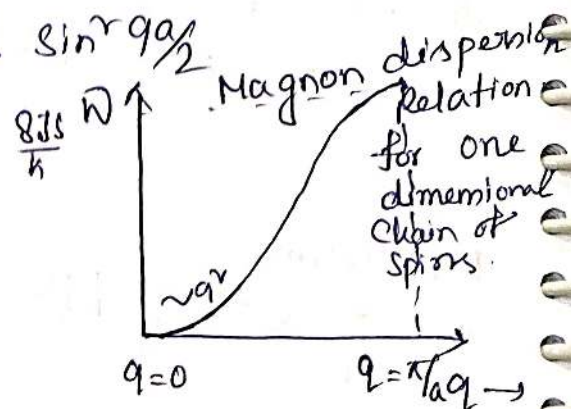 Sin² qa/2
Magnon dispersion
Relation
for one
dimemsional
Chain of
spins.
8JS/ħ ω
~q²
q=0
q=π/a q →